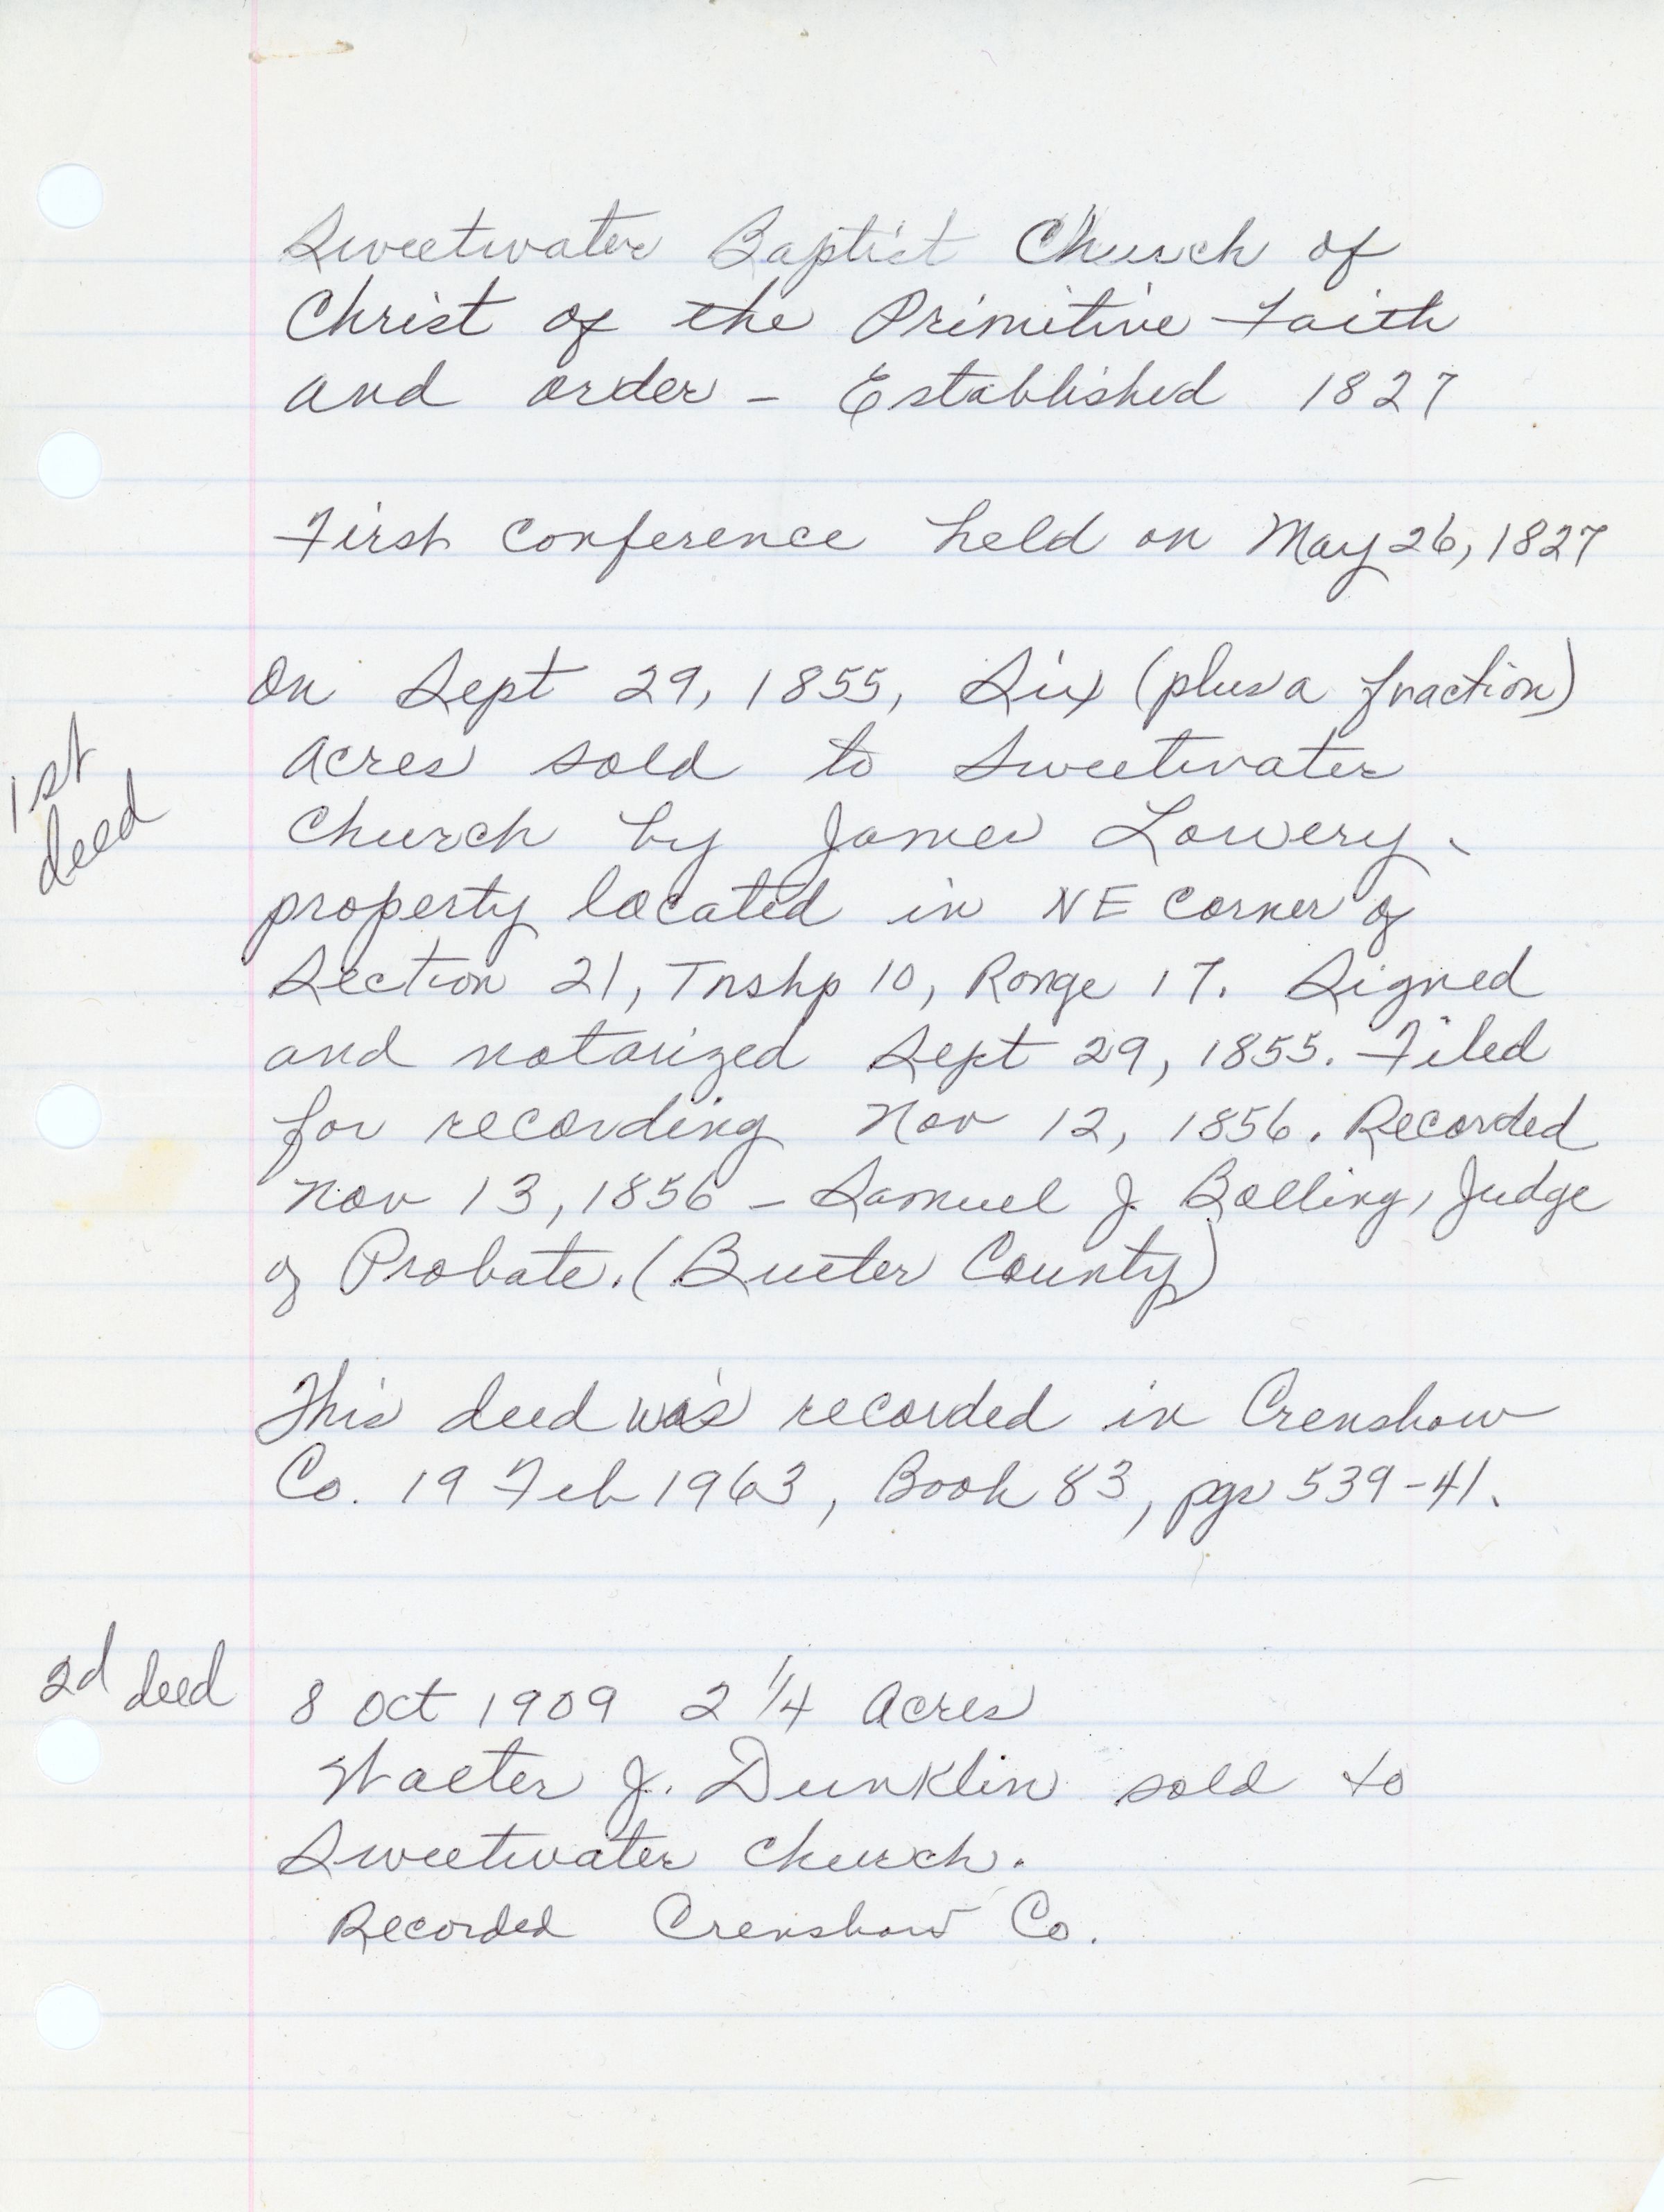 Sweetwater Baptist Church of
Christ of the Primitive Faith
and order - Established 1827
First conference held on May 26, 1827
On Sept 29, 1855, Six (plus a fraction)
1st
deed
acres sold to Sweetwater
Church by James Lowery.
property located in NE corner of
Section 21, Tnshp 10, Range 17. Signed
and notarized Sept 29, 1855. Filed
for recording Nov 12, 1856. Recorded
Nov 13, 1856 - Samuel J. Bolling, Judge
of Probate. (Butler County)
This deed was recorded in Crenshaw
Co. 19 Feb 1963, Book 83, pgs 539-41.
2d deed
8 Oct 1909 2 1/4 Acres
Walter J. Dunklin sold to
Sweetwater Church.
Recorded Crenshaw Co.